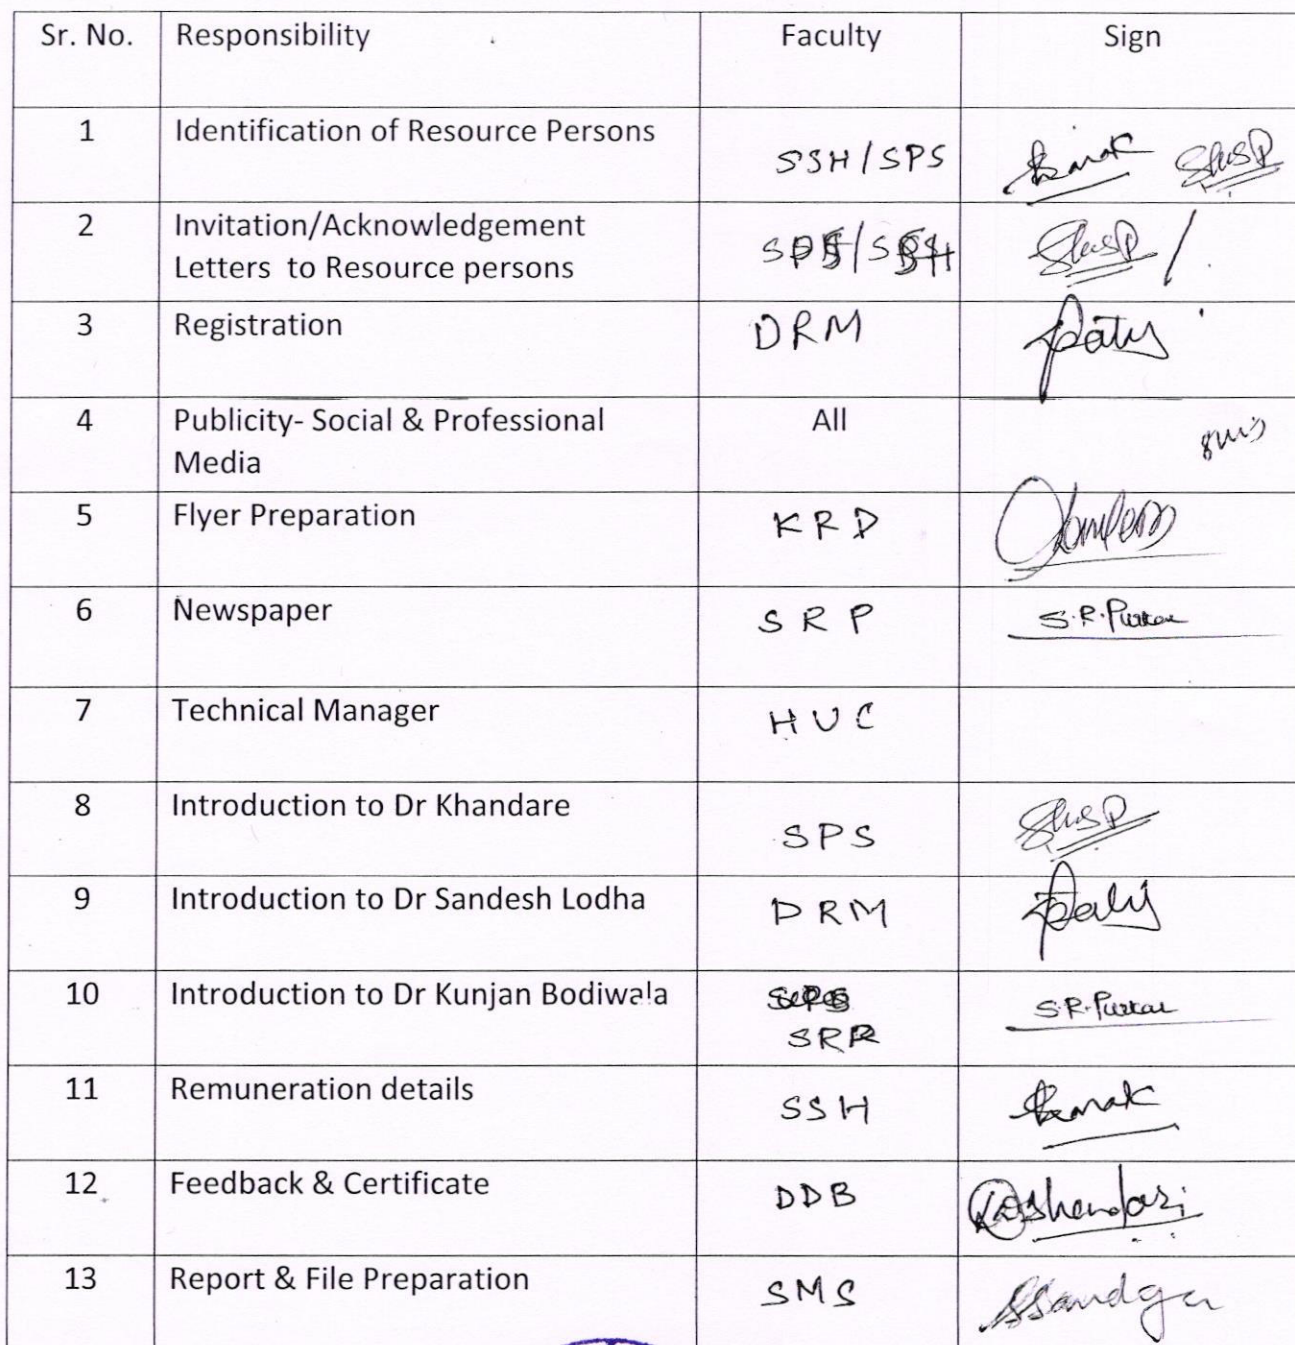 Sr. No. Responsibility Faculty Sign
1 Identification of Resource Persons SSH/SPS
2 Invitation/Acknowledgement
Letters to Resource persons
3 Registration DRM
4 Publicity- Social & Professional All
Media
5 Flyer Preparation KRD
6 Newspaper SRP S.R.Purkar
7 Technical Manager HUC
8 Introduction to Dr Khandare SPS
9 Introduction to Dr Sandesh Lodha DRM
10 Introduction to Dr Kunjan Bodiwala
SRP S.R.Purkar
11 Remuneration details SSH
12 Feedback & Certificate DDB
13 Report & File Preparation SMS